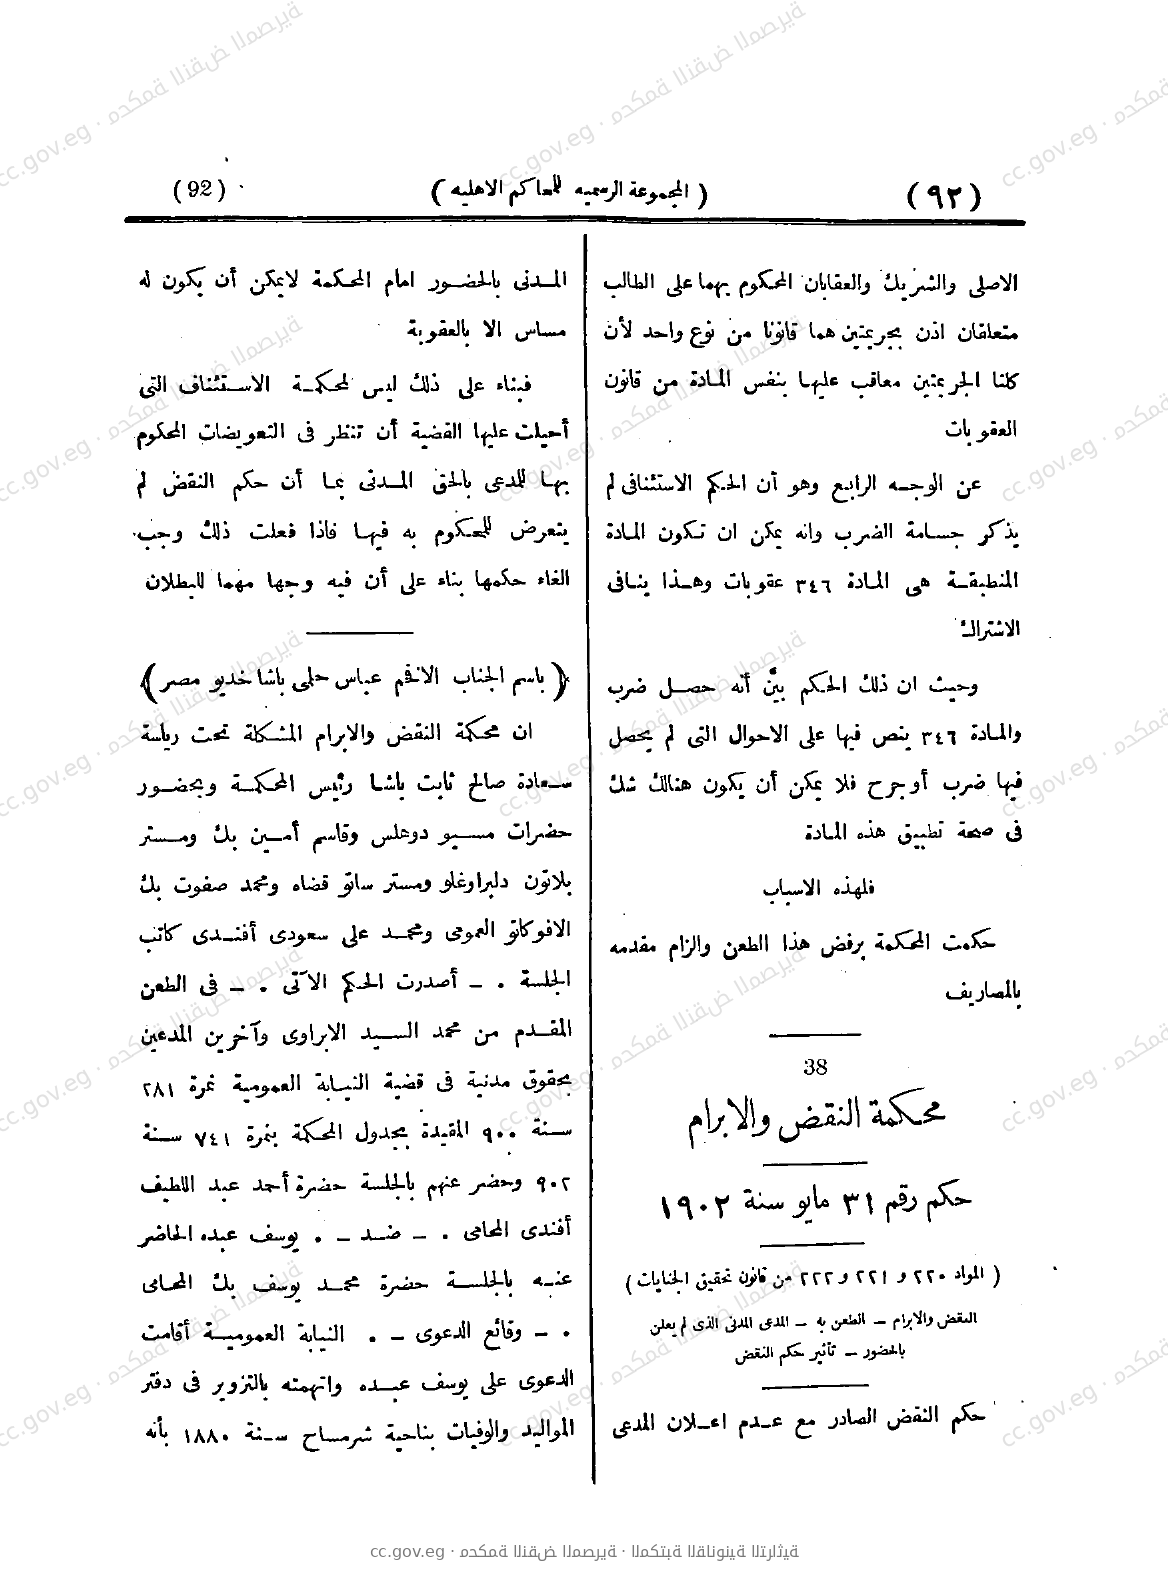 (٩٢) (المجموعة الرسميه للمحاكم الاهليه) (92)
الاصلى والشريك والعقابان المحكوم بهما على الطالب
متعلقان اذن بجريمتين هما قانونا من نوع واحد لأن
كلتا الجريمتين معاقب عليها بنفس المادة من قانون
العقوبات
عن الوجه الرابع وهو أن الحكم الاستئنافى لم
يذكر جسامة الضرب وانه يمكن ان تكون المادة
المنطبقة هى المادة ٣٤٦ عقوبات وهذا ينافى
الاشتراك
وحيث ان ذلك الحكم بيَّن أنه حصل ضرب
والمادة ٣٤٦ ينص فيها على الاحوال التى لم يحصل
فيها ضرب أو جرح فلا يمكن أن يكون هنالك شك
فى صحة تطبيق هذه المادة
فلهذه الاسباب
حكمت المحكمة برفض هذا الطعن والزام مقدمه
بالمصاريف
38
محكمة النقض والابرام
حكم رقم ٣١ مايو سنة ١٩٠٢
(المواد ٢٢٠ و ٢٢١ و ٢٢٢ من قانون تحقيق الجنايات)
النقض والابرام – الطعن به – المدعى المدنى الذى لم يعلن
بالحضور – تأثير حكم النقض
حكم النقض الصادر مع عدم اعلان المدعى
المدنى بالحضور امام المحكمة لا يمكن أن يكون له
مساس الا بالعقوبة
فبناء على ذلك ليس لمحكمة الاستئناف التى
أحيلت عليها القضية أن تنظر فى التعويضات المحكوم
بها للمدعى بالحق المدنى بما أن حكم النقض لم
يتعرض للمحكوم به فيها فاذا فعلت ذلك وجب
الغاء حكمها بناء على أن فيه وجها مهما للبطلان
(باسم الجناب الافخم عباس حلمى باشا خديو مصر)
ان محكمة النقض والابرام المشكلة تحت رياسة
سعادة صالح ثابت باشا رئيس المحكمة وبحضور
حضرات مسيو دوهلس وقاسم أمين بك ومستر
بلاتون دلبراوغلو ومستر ساتو قضاه ومحمد صفوت بك
الافوكاتو العمومى ومحمد على سعودى أفندى كاتب
الجلسة . – أصدرت الحكم الآتى . – فى الطعن
المقدم من محمد السيد الابراوى وآخرين المدعين
بحقوق مدنية فى قضية النيابة العمومية نمرة ٢٨١
سنة ٩٠٠ المقيدة بجدول المحكمة بنمرة ٧٤١ سنة
٩٠٢ وحضر عنهم بالجلسة حضرة أحمد عبد اللطيف
أفندى المحامى . – ضد – . يوسف عبده الحاضر
عنه بالجلسة حضرة محمد يوسف بك المحامى
. – وقائع الدعوى – . النيابة العمومية أقامت
الدعوى على يوسف عبده واتهمته بالتزوير فى دفتر
المواليد والوفيات بناحية شرمساح سنة ١٨٨٠ بأنه
cc.gov.eg · محكمة النقض المصرية · المكتبة القانونية التراثية